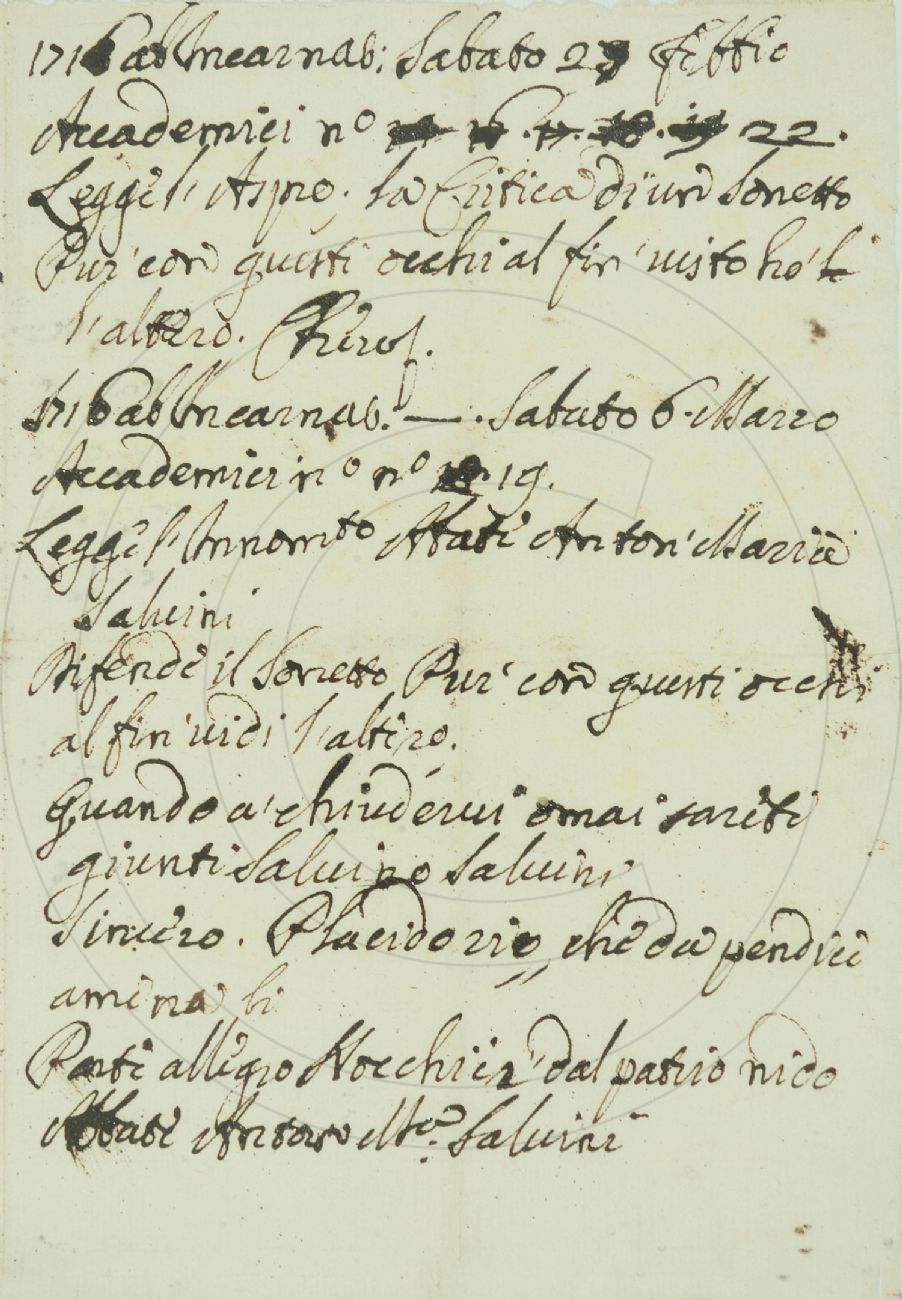 1716 ab Incarnat: Sabato 27 Febbio
Accademici n° 14 16. 17. 18. 19 22.
Legge l'Aspro. la Critica di un Sonetto
Pur' con questi occhi al fin' visto hò
l'altero.
1716 ab Incarnat. — . Sabato 6. Marzo
Accademici n° n° 18. 19.
Legge l'Innom:to Abate Anton' Maria
Salvini
Difende il Sonetto Pur' con questi occhi
al fin' vidi l'altero.
Quando a' chiudervi omai sarete
giunti Salvino Salvini
Sincero. Placido rio, che da pendici
amena
Parti allegro Nocchier' dal patrio nido
Abate Antono M:a Salvini